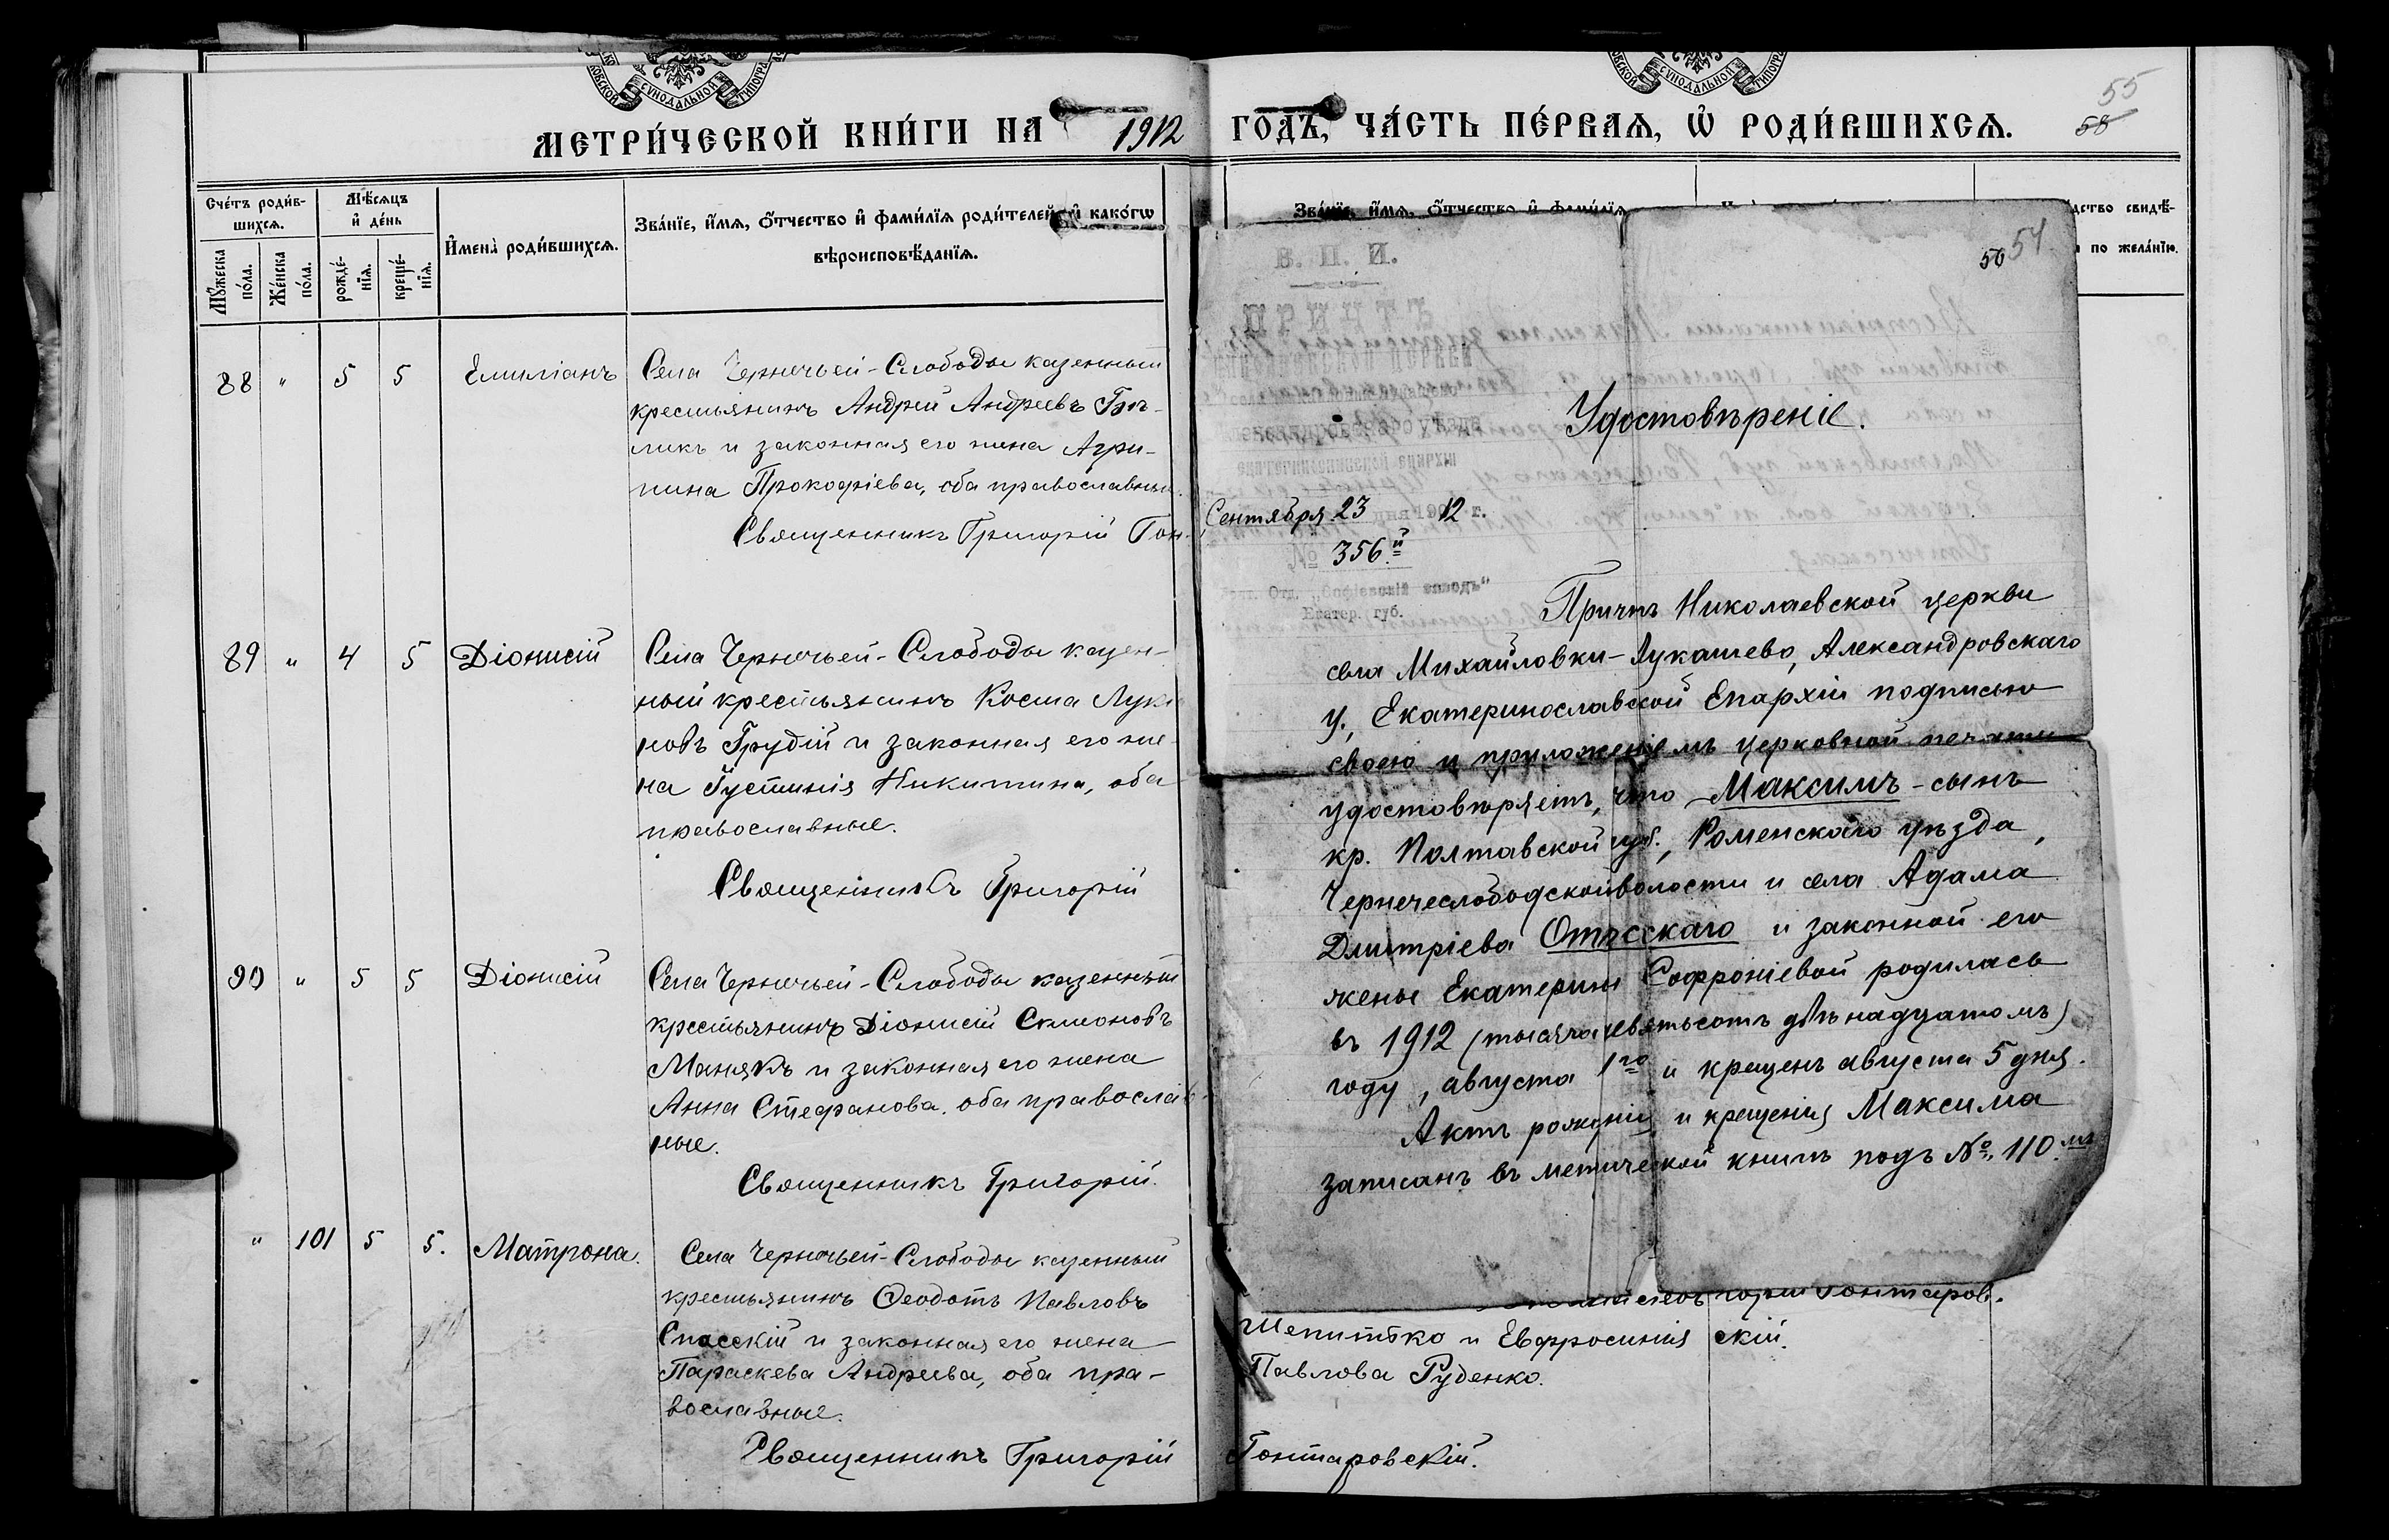 СѴНОДАЛЬНОЙ
МЕТРИ́ЧЕСКОЙ КНИ́ГИ НА 1912
Сче́тъ роди́в-
шихсѧ.
Мѣ́сѧцъ
и҆ де́нь
И҆мена̀ роди́вшихсѧ.
Зва́нїе, и҆́мѧ, ѻ҆́тчество и҆ фами́лїѧ роди́телей, и҆ како́гѡ
вѣроисповѣ́данїѧ.
Мꙋ́жеска
по́ла.
Же́нска
по́ла.
рожде́-
нїѧ.
креще́-
нїѧ.
88 " 5 5 Емиліанъ
Села Чернечьей-Слободы казенный
крестьянинъ Андрей Андреевъ
ликъ и законная его жена Агри-
пина Прокофіева, оба православные.
Священникъ Григорій Гон-
89 " 4 5 Діонисій
Села Чернечьей-Слободы казен-
ный крестьянинъ Косма Лукія
новъ Грудій и законная его же-
на Іустинія Никитина, оба
православные.
Священникъ Григорій
90 " 5 5 Діонисій
Села Чернечьей-Слободы казенный
крестьянинъ Діонисій Симоновъ
Манякъ и законная его жена
Анна Стефанова, оба православ-
ные.
Священникъ Григорій.
" 101 5 5. Матрона.
Села Чернечьей-Слободы казенный
крестьянинъ Ѳеодотъ Павловъ
Спасскій и законная его жена
Параскева Андреева, оба пра-
вославные.
Священникъ Григорій
СѴНОДАЛЬНОЙ
ГО́ДЪ, ЧА́СТЬ ПЕ́РВАѦ, Ѡ҆ РОДИ́ВШИХСѦ.
55
58
Зва́нїе, и҆́мѧ, ѻ҆́тчество и҆ фами́лїѧ
дство свидѣ́-
по жела́нїю.
56 54
В. П. И.
ПРИЧТЪ
Александровскаго уѣзда
Екатеринославской епархіи
Сентября 23 дня 1912 г.
№ 356.й
Почт. Отд. „Софіевскій заводъ"
Екатер. губ.
Удостовѣреніе.
Причтъ Николаевской церкви
села Михайловки-Лукашево, Александровскаго
у., Екатеринославской Епархіи подписью
своею и приложеніемъ церковной печати
удостовѣряетъ, что Максимъ - сынъ
кр. Полтавской губ., Роменскаго уѣзда,
Чернечеслободской волости и села Адама
Дмитріева Отъсскаго и законной его
жены Екатерины Софроніевой родилась
въ 1912 (тысяча девятьсотъ двѣнадцатомъ)
году, августа 1го и крещенъ августа 5 дня.
Актъ рожденія и крещенія Максима
записанъ въ метической книгѣ подъ № 110.мъ
Гонтаров.
Шепитко и Евфросинія скій.
Павлова Руденко.
Гонтаровскій.